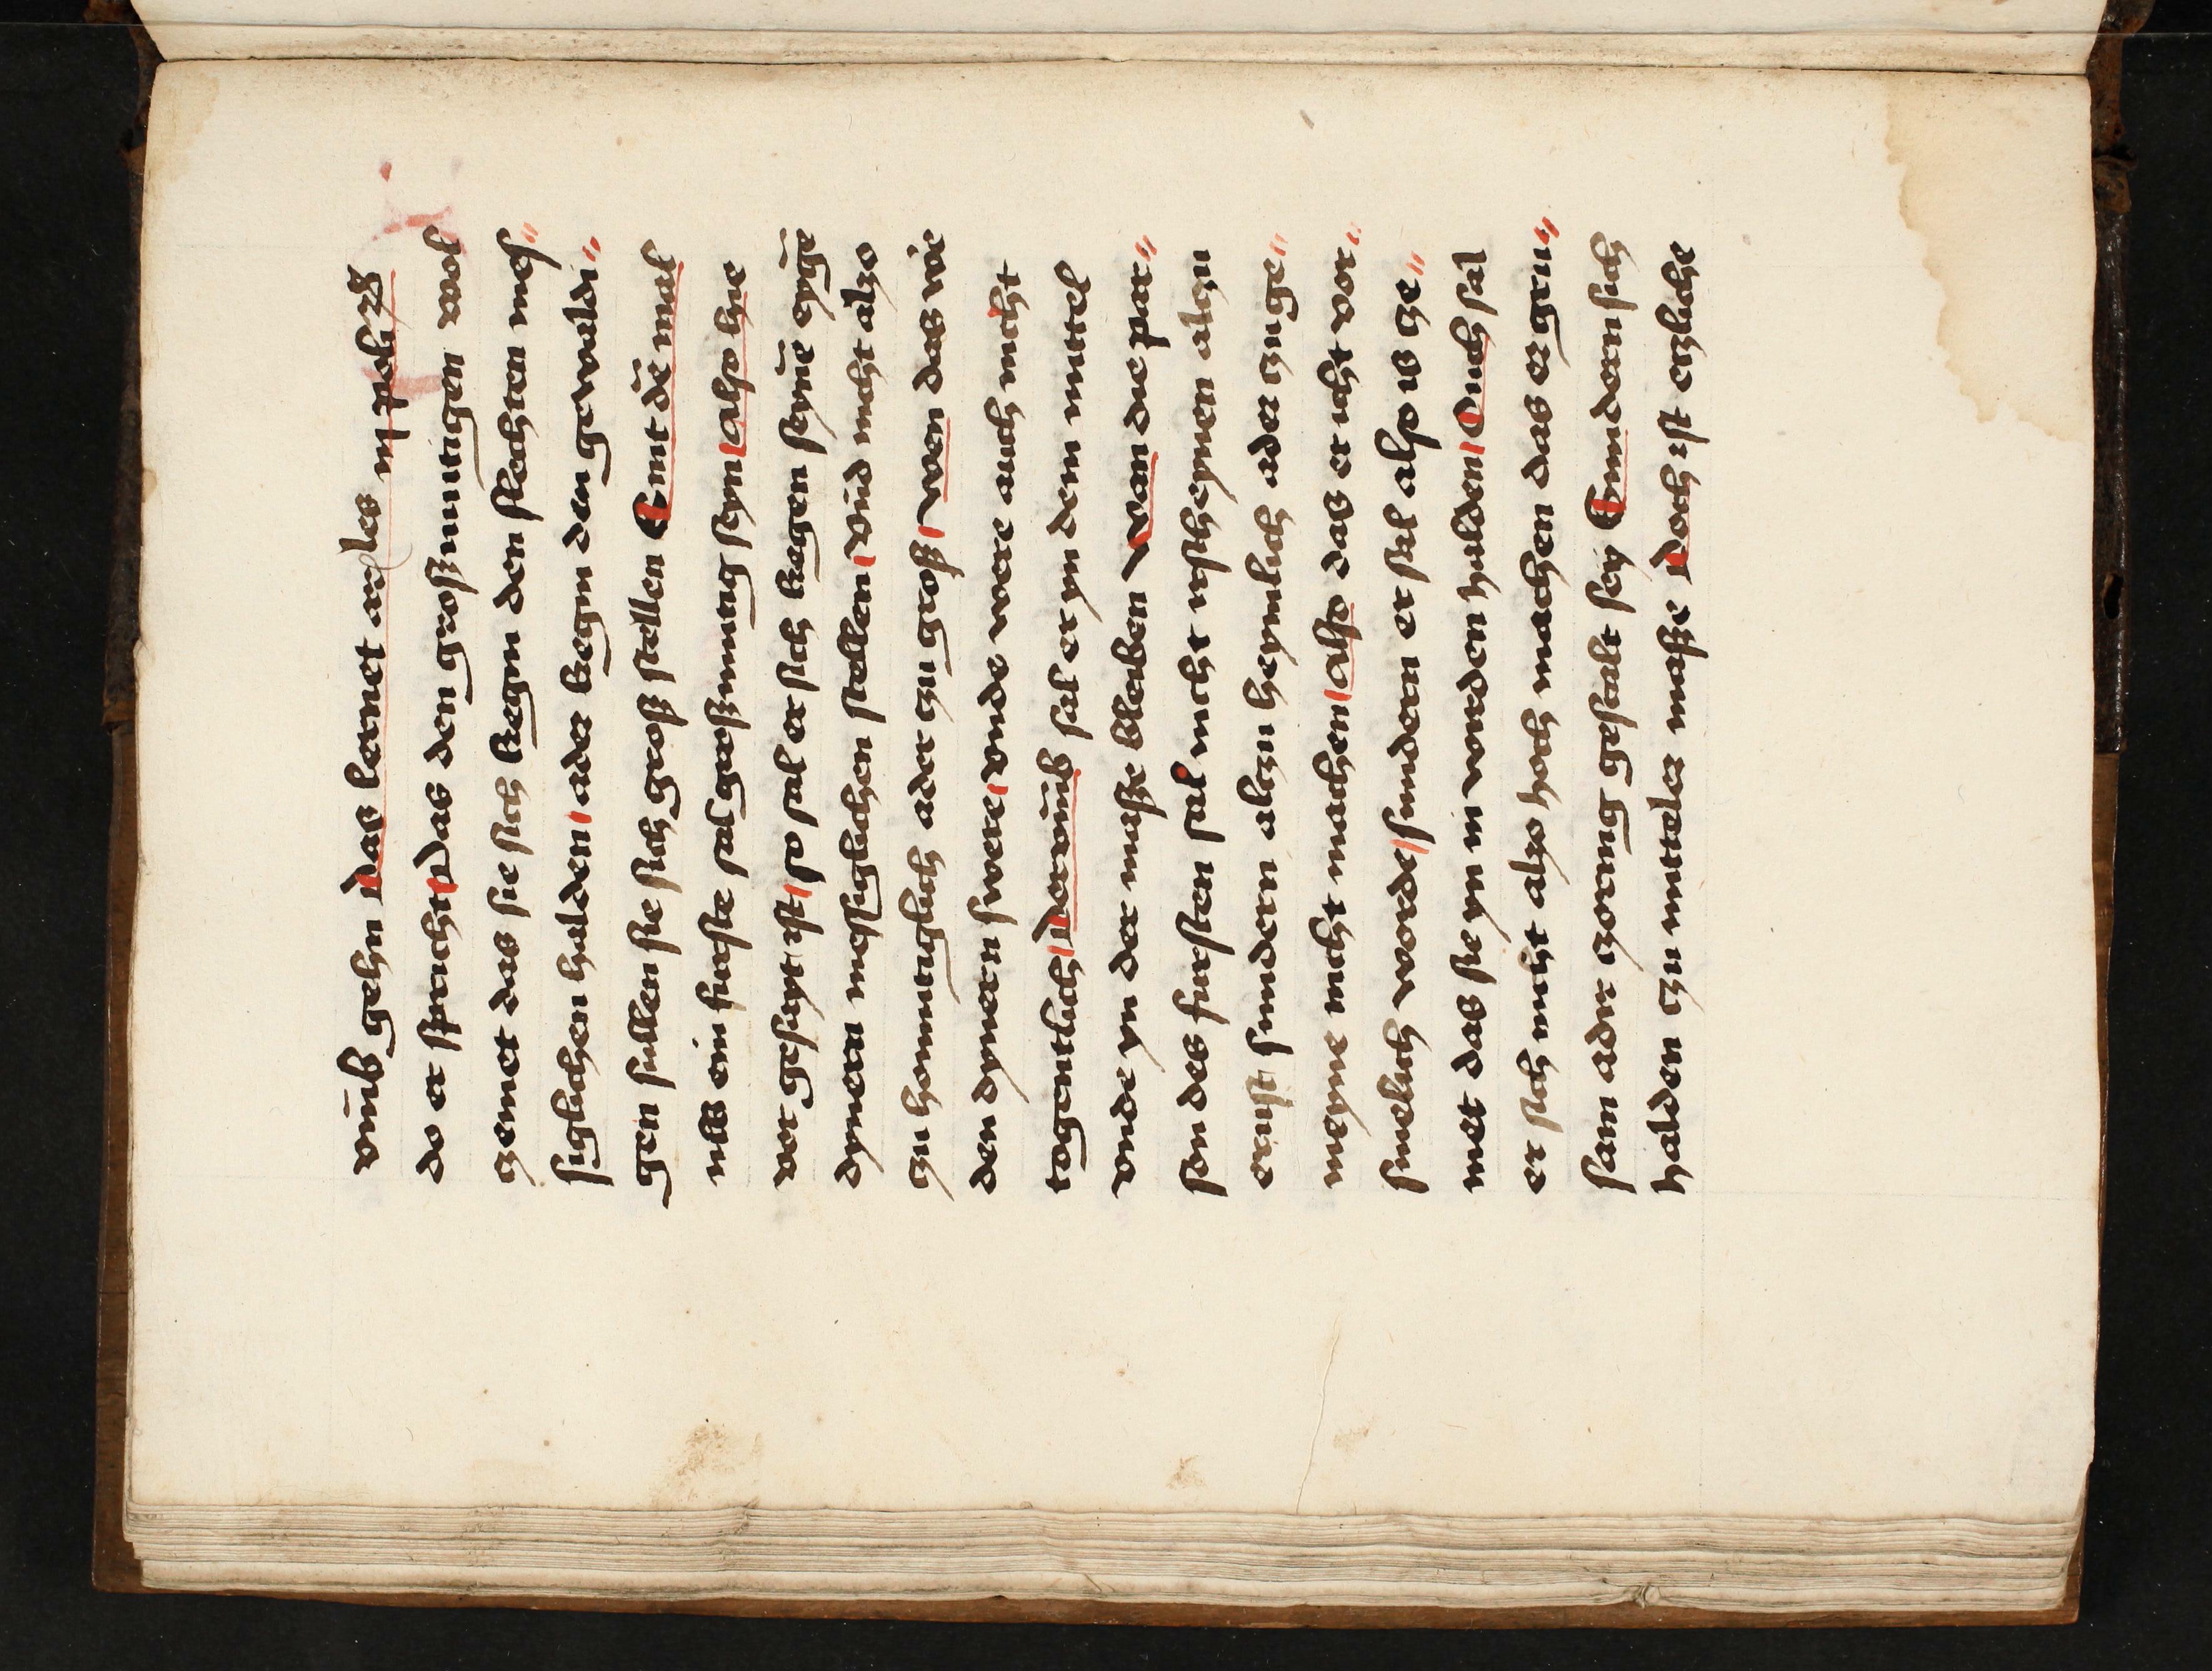 vm̄b gehn Das lernet arꝭles in polit͛
do er spricht Das den großmutigen wol
zemet das sie sich kegen den slechten mes〃
siglichen halden ader kegen den gewaldi〃
gen sullen sie sich groß stellen Sint dē mal
nu ein furste sal großmutig seyn also hie
vor gesayt ist so sal er sich kegen seynē eygē
dynern messiglichen stellen vnd nicht alzo
zu homutiglich ader zu groß wen das wie
den dynern swere vnde were auch nicht
togentlich Dorvm̄b sal er yn dem mittel
vnde yn der maße bleiben wan die par〃
son des fursten sal nicht irscheynen alzu
ernist sundern alzu heymlich ader zu ge〃
meyne nicht machen also das er icht vor〃
smelich worde sundern er sal also is ze〃
met das sie yn in worden halden Ouch sal
er sich nicht also hoch machen das er gru〃
sam ader zornig gestalt sey Sundern sich
halden zu mitteler maße Doch ist erliche